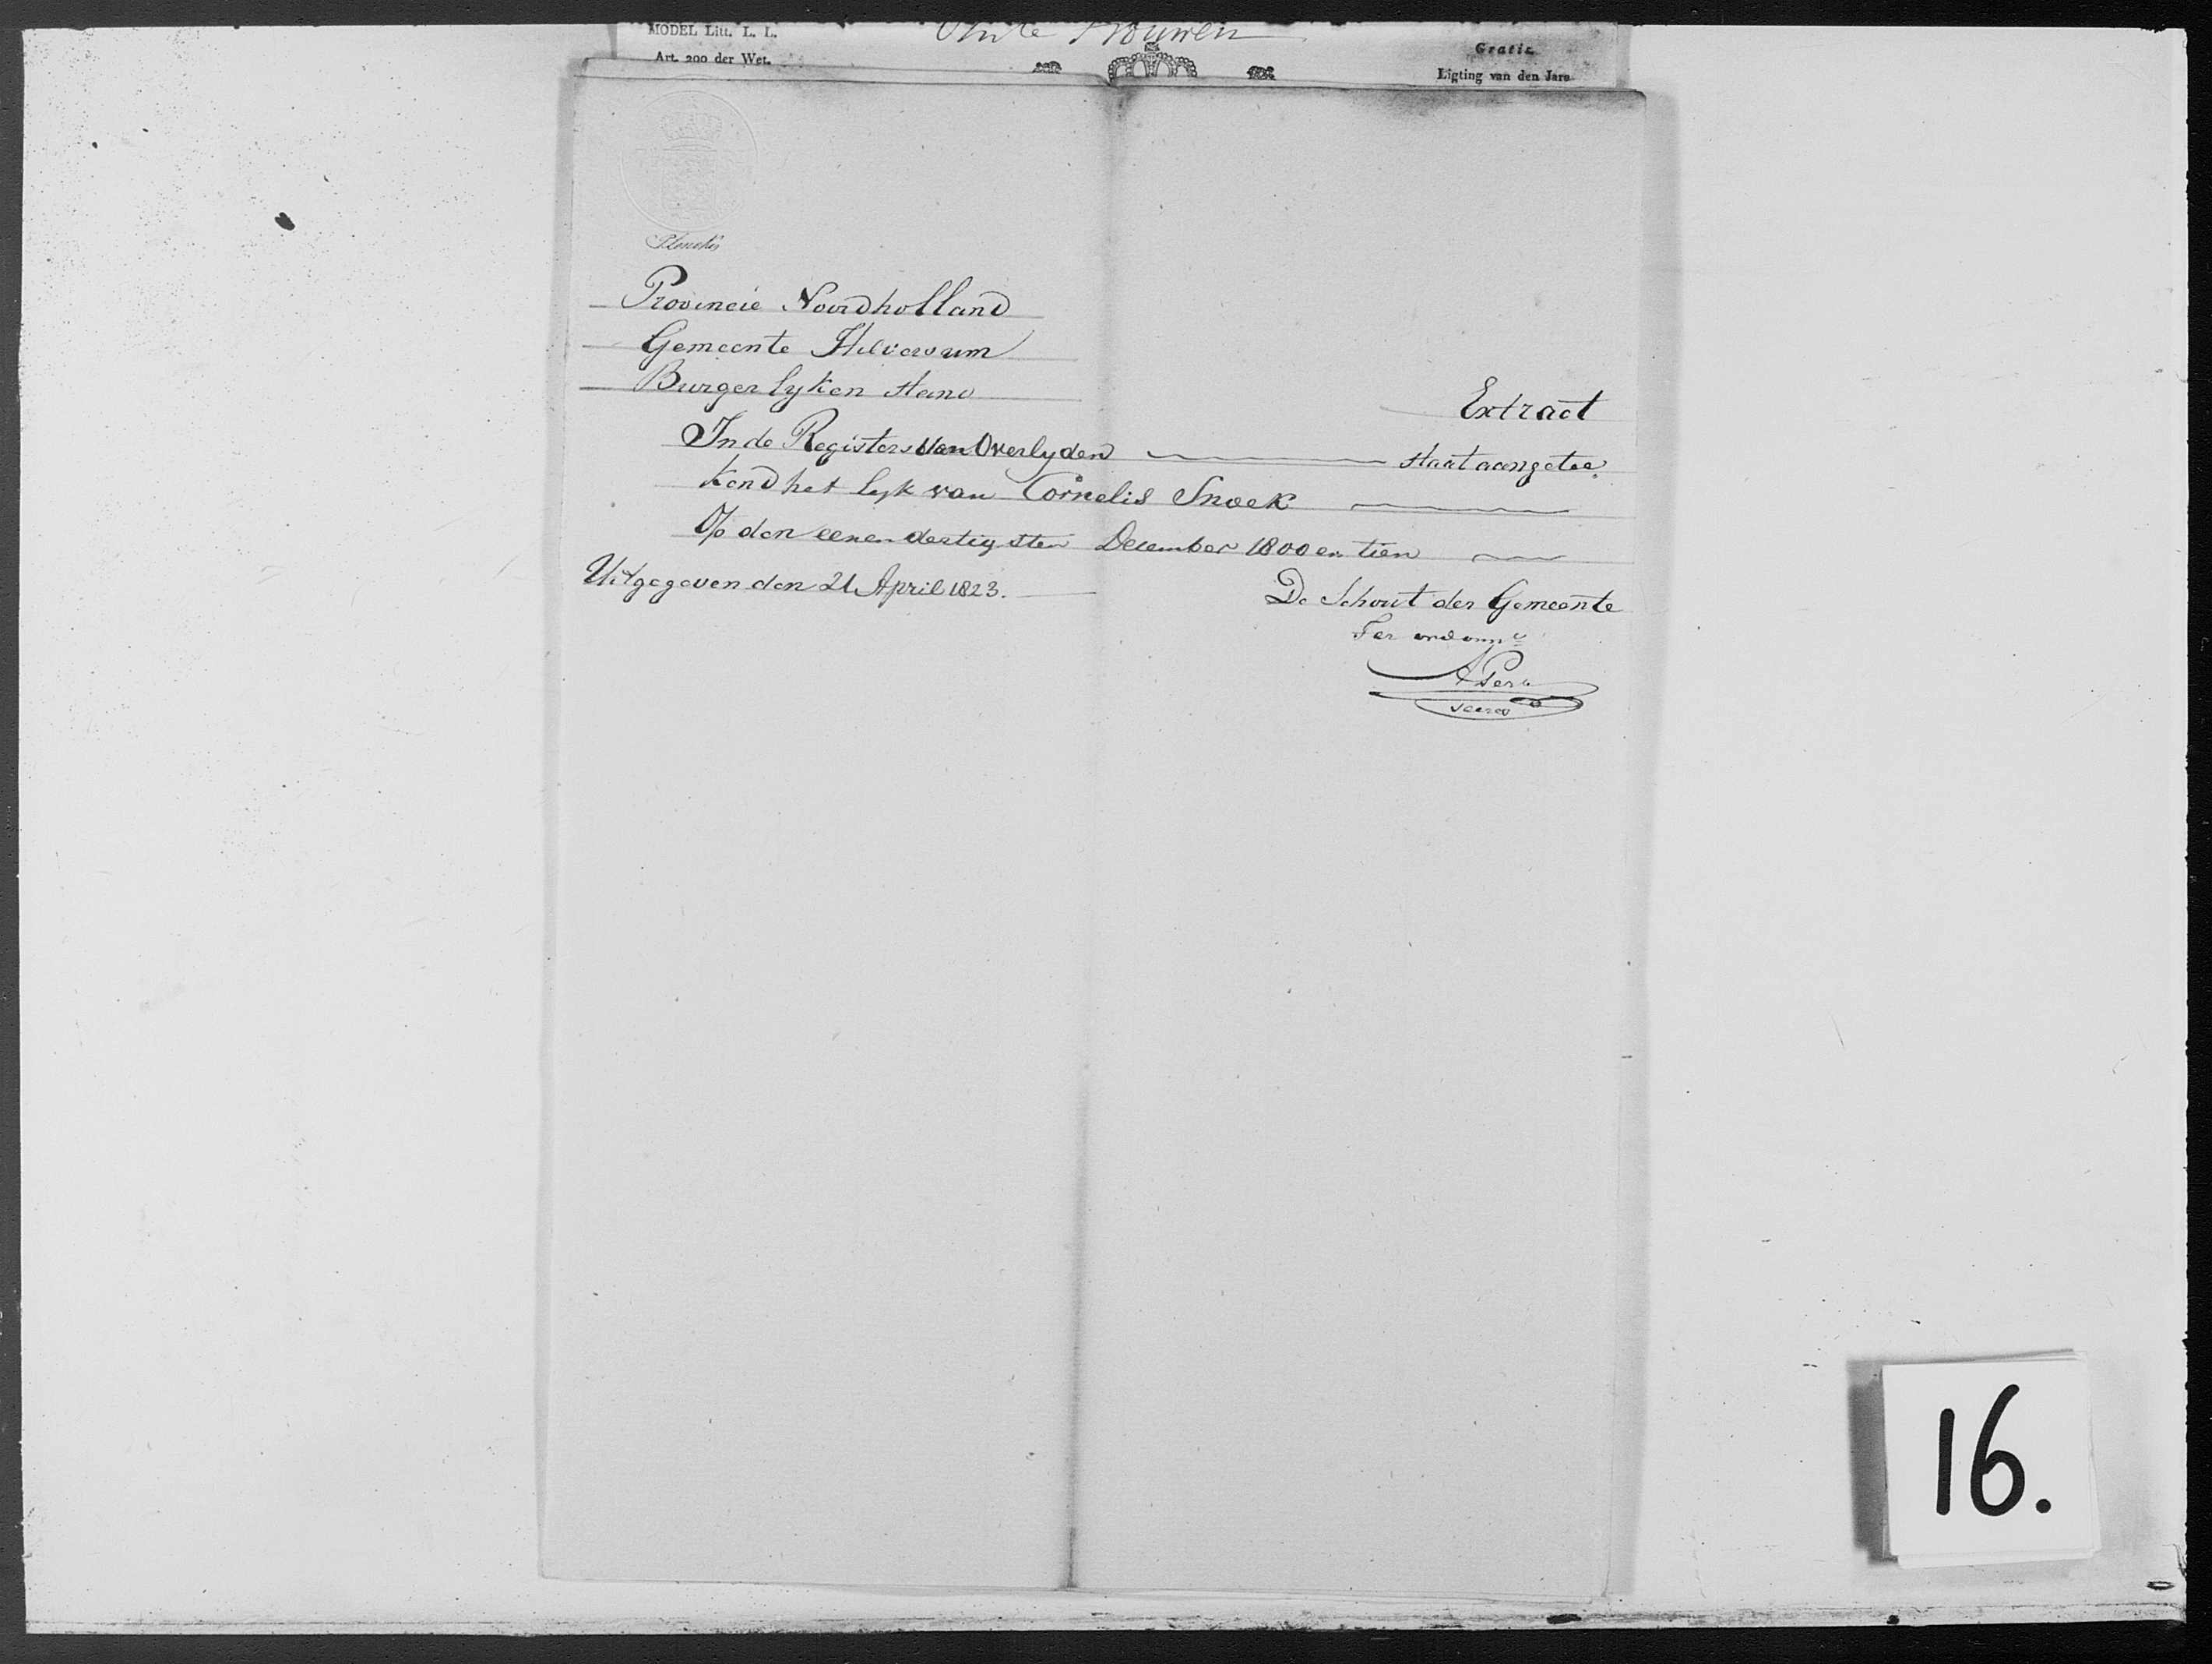 MODEL Litt. L. L.
Art. 200 der Wet.
Gratis
Ligting van den Jare
Provincie Noordholland
Gemeente Hilversum
Burgerlyken stand
Extract
In de Registers van Overlyden staat aangetee
kend het lyk van Cornelis Snoek
Op den eenendertigsten December 1800 en tien
Uitgegeven den 21 April 1823.
De Schout der Gemeente
Ter ordonn
16.